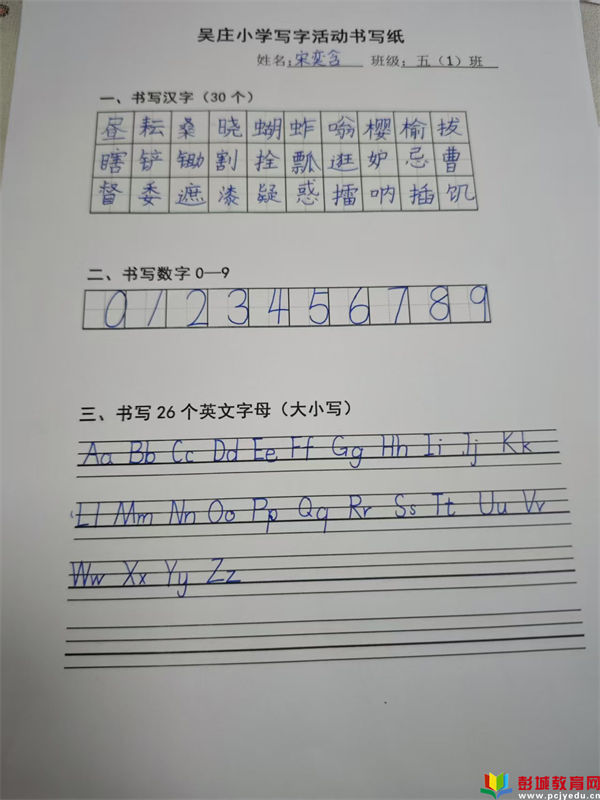 吴庄小学写字活动书写纸
姓名:宋奕含 班级:五(1)班
一、书写汉字(30个)
昼 耘 桑 晓 蝴 蚱 嗡 樱 榆 拔
瞎 铲 锄 割 拴 瓢 逛 妒 忌 曹
督 委 遮 漆 疑 惑 擂 呐 插 饥
二、书写数字0—9
0 1 2 3 4 5 6 7 8 9
三、书写26个英文字母(大小写)
Aa Bb Cc Dd Ee Ff Gg Hh Ii Jj Kk
Ll Mm Nn Oo Pp Qq Rr Ss Tt Uu Vv
Ww Xx Yy Zz
彭城教育网
www.pcjyedu.cn